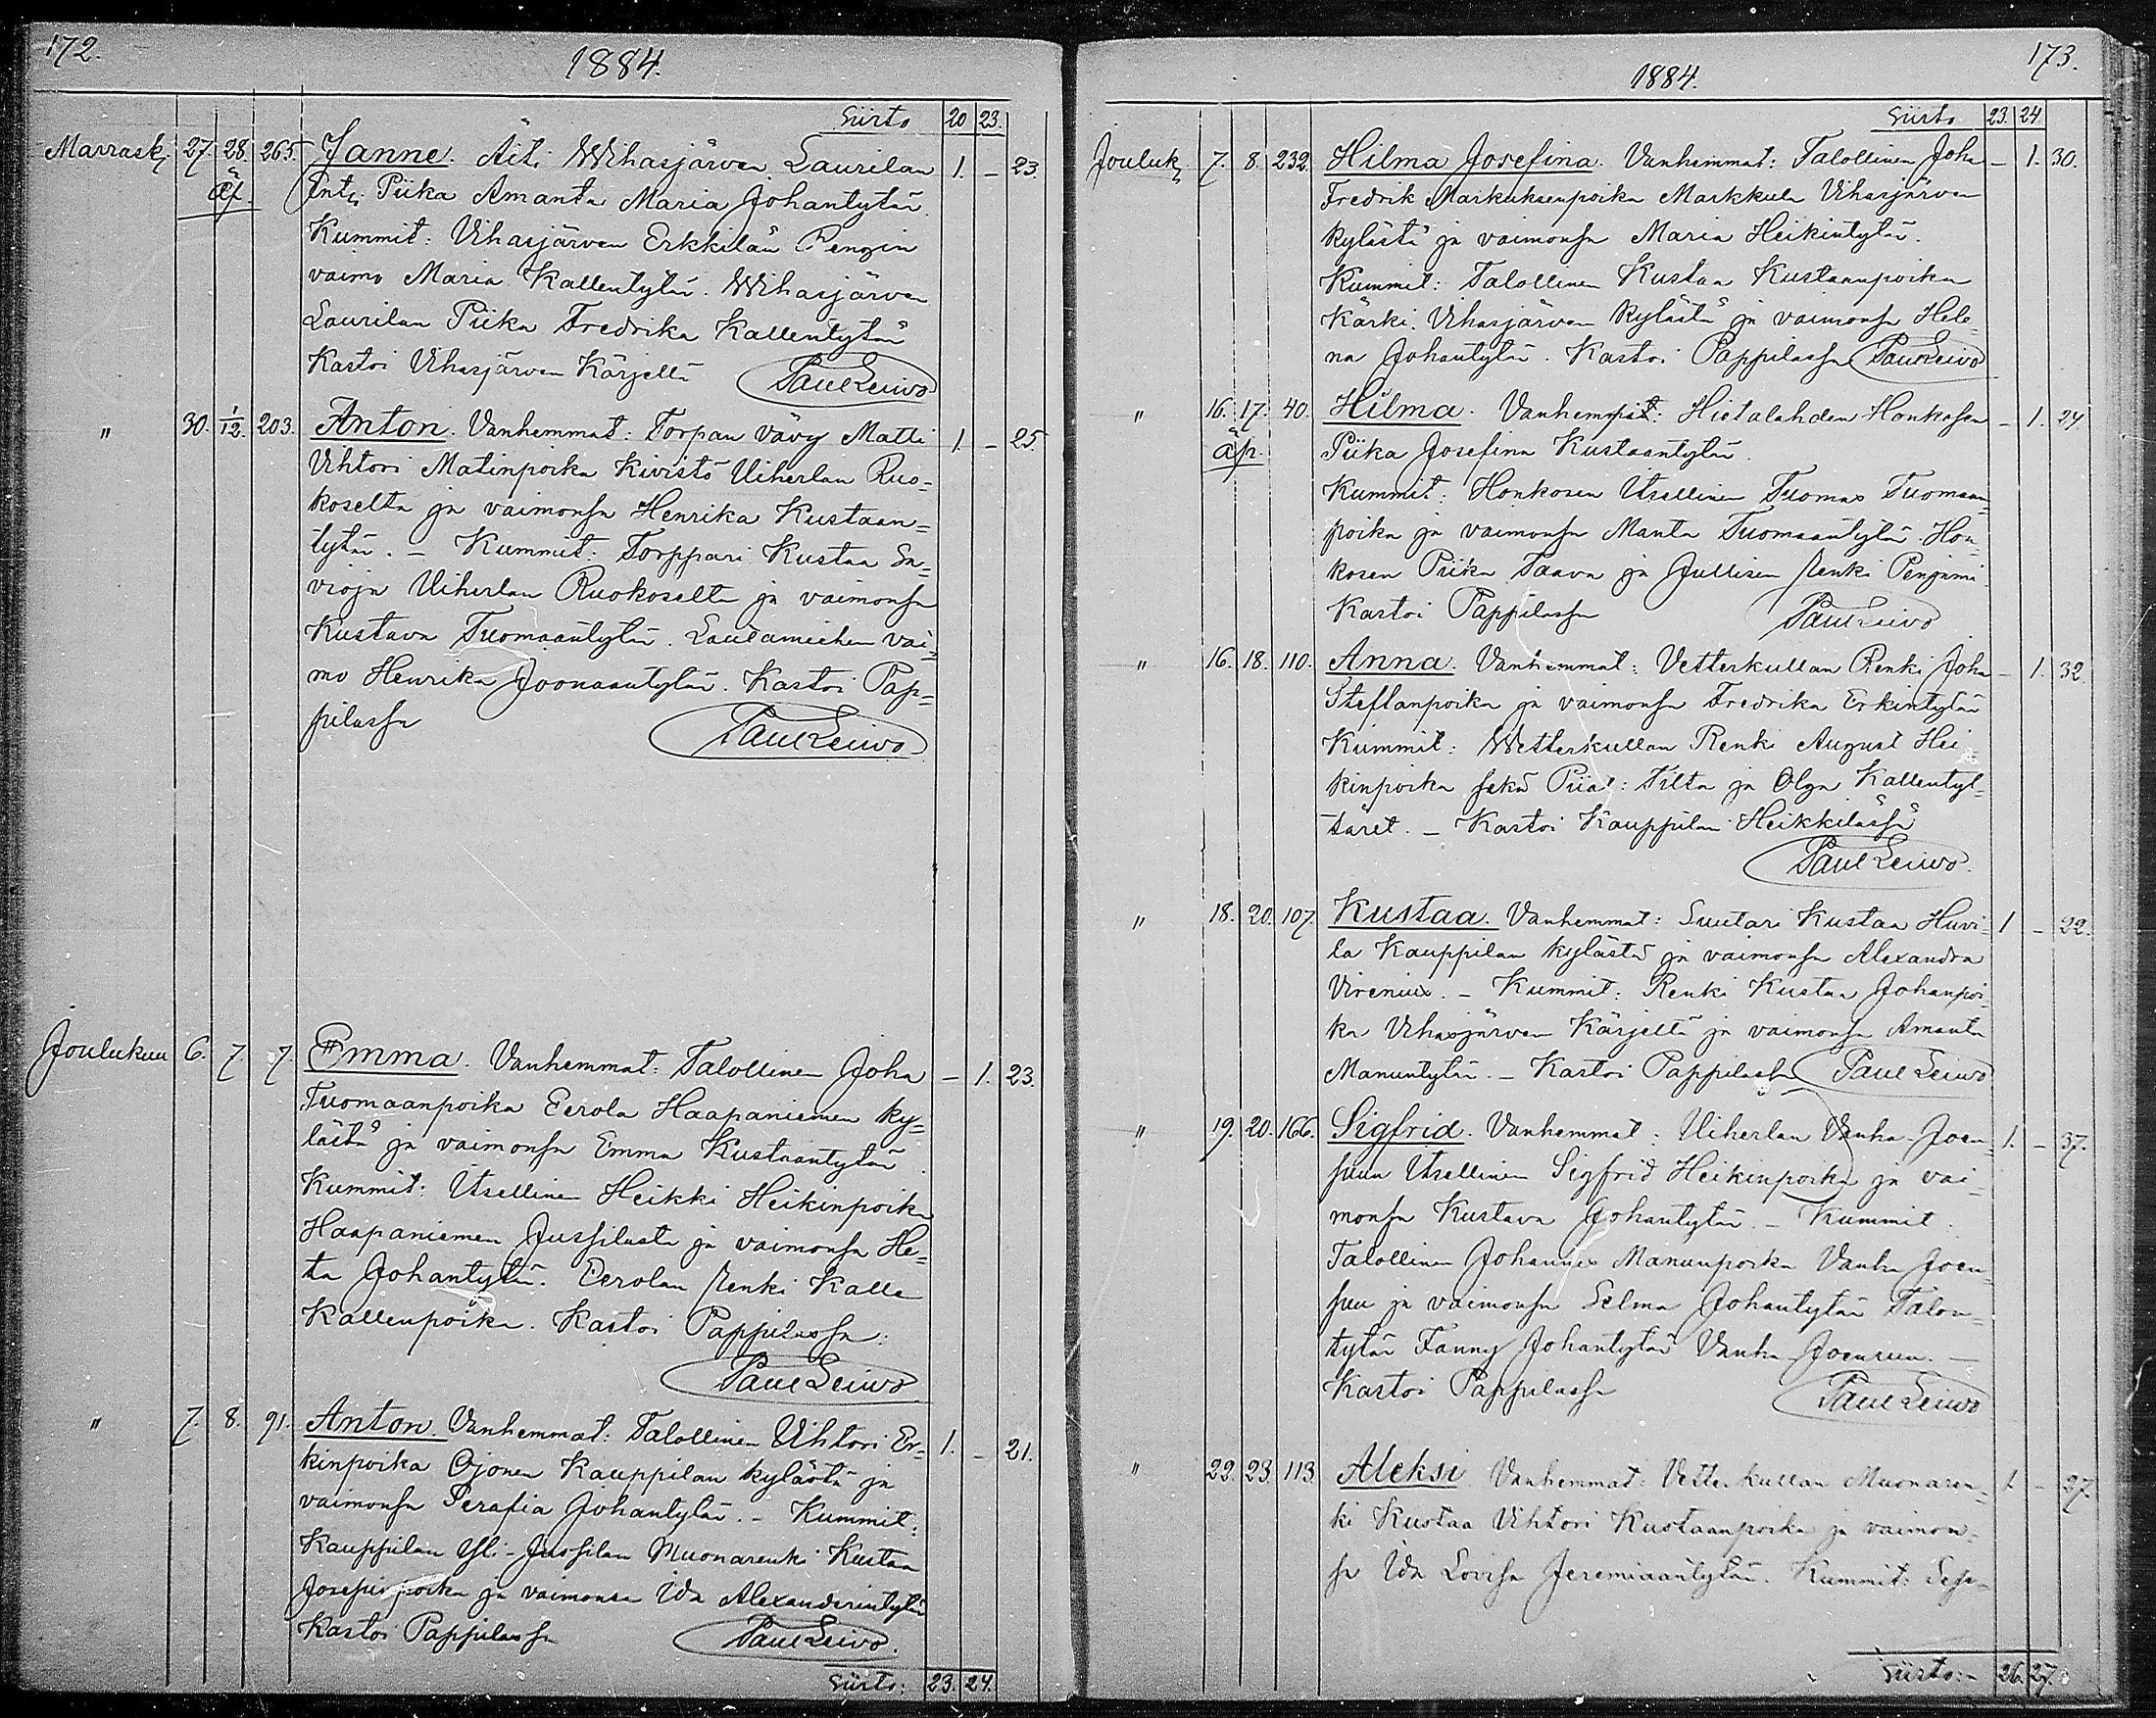 172.
1884.
Siirto 20 23.
Marrask 27. 28. 265. Janne. Äiti Wihasjärven Laurilan 1. – 23.
äp. Piika Amanta Maria Johantytär.
Kummit: Vihasjärven Erkkilän Rengin
vaimo Maria Kallentytär. Wihasjärven
Laurilan Piika Fredrika Kallentytär
Kastoi Vihasjärven Kärjellä Paul Leivo
" 30. 1/12. 203. Anton. Vanhemmat: Torpan Vävy Matti 1. – 25.
Vihtori Matinpoika Kivistö Uiherlan Ruo-
koselta ja vaimonsa Henrika Kustaan-
tytär. – Kummit: Torppari Kustaa Sa-
vioja Uiherlan Ruokoselta ja vaimonsa
Kustava Tuomaantytär. Lautamiehen vai-
mo Henrika Joonaantytär. Kastoi Pap-
pilassa Paul Leivo
Joulukuu 6. 7. 7. Emma. Vanhemmat: Talollinen Joha – 1. 23.
Tuomaanpoika Eerola Haapaniemen ky-
lästä ja vaimonsa Emma Kustaantytär.
Kummit: Itsellinen Heikki Heikinpoika
Haapaniemen Jussilasta ja vaimonsa He-
ta Johantytär. Eerolan Renki Kalle
Kallenpoika. Kastoi Pappilassa.
Paul Leivo
" 7. 8. 91. Anton. Vanhemmat: Talollinen Vihtori Er- 1. – 21.
kinpoika Ojonen Kauppilan kylästä ja
vaimonsa Serafia Johantytär. – Kummit:
Kauppilan Yli-Jussilan Muonarenki Kustaa
Josefinpoika ja vaimonsa Ida Alexanderintytär
Kastoi Pappilassa Paul Leivo.
Siirto: 23. 24.
173.
1884.
Siirto 23. 24
Jouluk 7. 8. 232. Hilma Josefina. Vanhemmat: Talollinen Joha – 1. 30.
Fredrik Markuksenpoika Markkula Vihasjärven
kylästä ja vaimonsa Maria Heikintytär.
Kummit: Talollinen Kustaa Kustaanpoika
Kärki. Vihasjärven kylästä ja vaimonsa Hele-
na Johantytär. Kastoi Pappilassa Paul Leivo
" 16. 17. 40. Hilma. Hietalahden Honkosen – 1. 24
äp. Piika Josefina Kustaantytär.
Kummit: Honkosen Itsellinen Tuomas Tuomaan-
poika ja vaimonsa Manta Tuomaantytär. Hon-
kosen Piika Taava ja Jullisen Renki Penjami
Kastoi Pappilassa Paul Leivo
" 16. 18. 110. Anna. Vanhemmat: Vetterkullan Renki Joha – 1. 32.
Steffanpoika ja vaimonsa Fredrika Erkintytär
Kummit: Wetterkullan Renki August Hei-
kinpoika sekä Piiat: Tilta ja Olga Kallentyt-
täret. – Kastoi Kauppilan Heikkilässä
Paul Leivo.
" 18. 20. 107. Kustaa. Vanhemmat: Suutari Kustaa Huvi- 1 – 22.
la Kauppilan kylästä ja vaimonsa Alexandra
Virenius. – Kummit: Renki Kustaa Johanpoi-
ka Vihasjärven Kärjeltä ja vaimonsa Amanta
Manuntytär. – Kastoi Pappilassa Paul Leivo
" 19. 20. 166. Sigfrid. Vanhemmat: Uiherlan Vanha-Joen- 1. – 37.
suun Itsellinen Sigfrid Heikinpoika ja vai-
monsa Kustava Johantytär. – Kummit:
Talollinen Johannes Manunpoika Vanha Joen-
suu ja vaimonsa Selma Johantytär Talon-
tytär Fanny Johantytär Vanha-Joensuu. –
Kastoi Pappilassa Paul Leivo
" 22. 23. 113. Aleksi. Vanhemmat: Vetterkullan Muonaren- 1. – 27.
ki Kustaa Vihtori Kustaanpoika ja vaimon-
sa Ida Lovisa Jeremiaantytär. Kummit: Sep-
Siirto: – 26. 27.